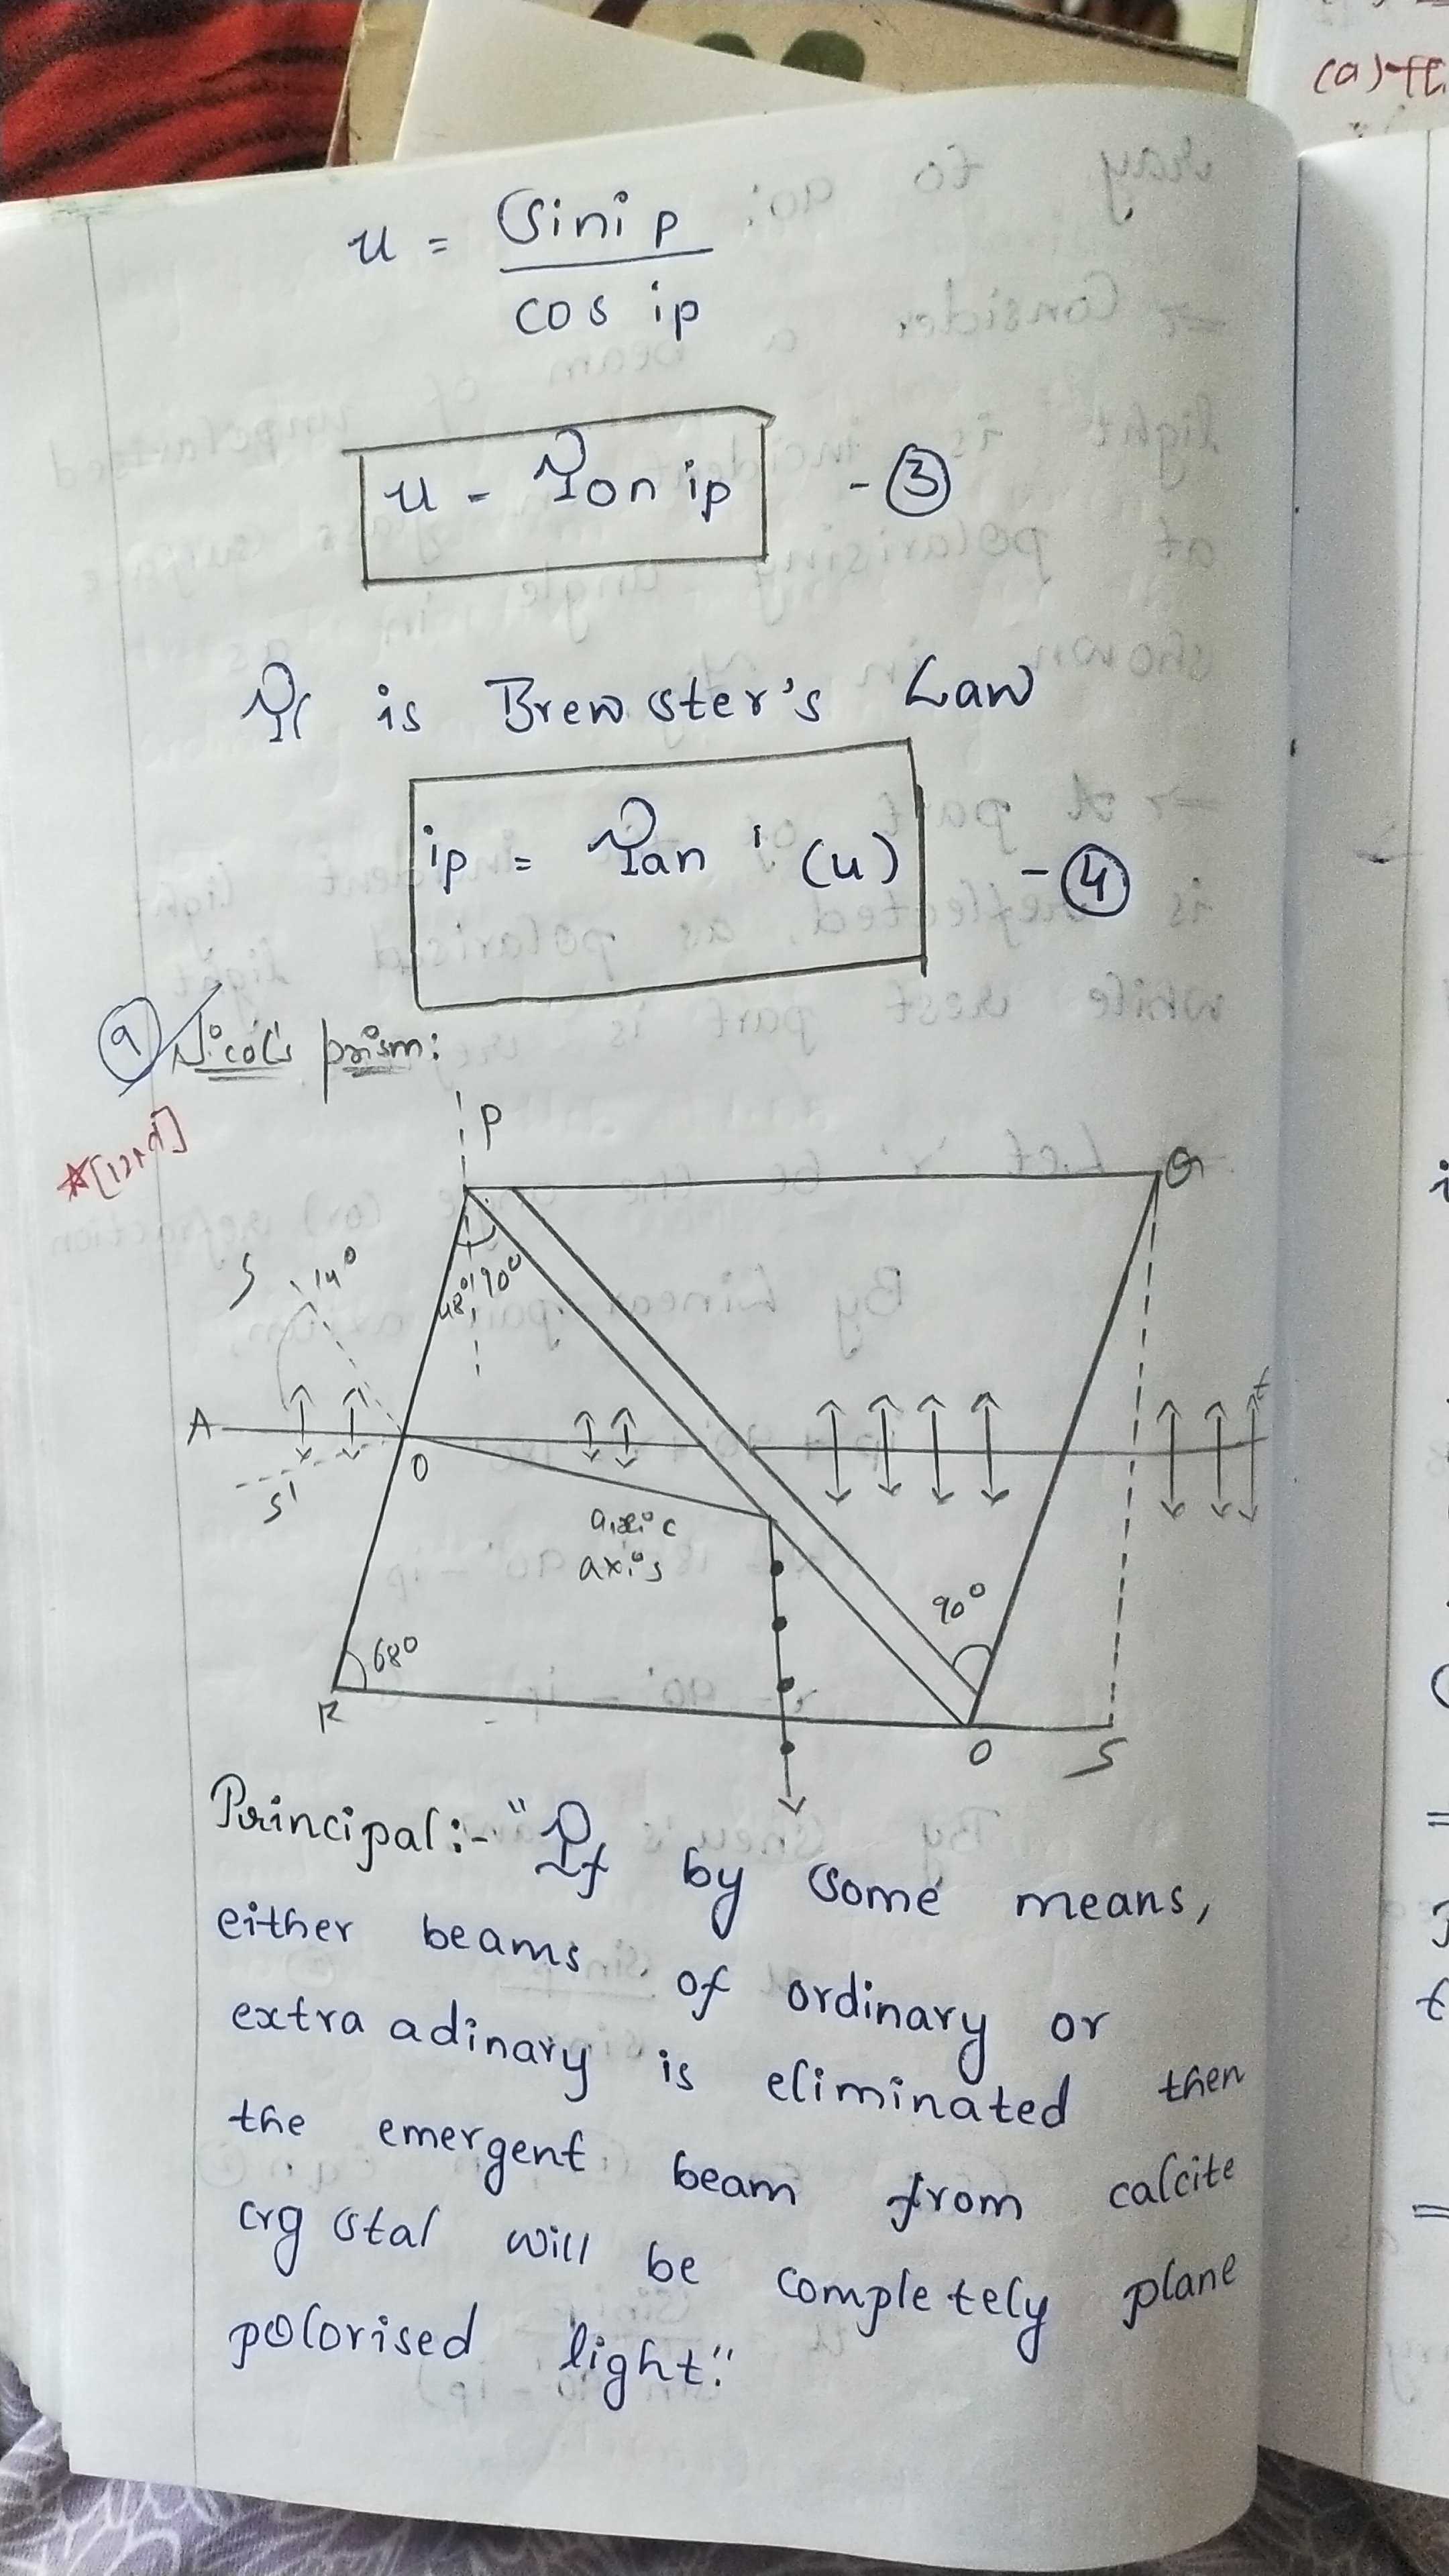 (a) th
u = Sin ip
cos ip
u = Tan ip - ③
It is Brewster's Law
ip = Tan ' (u) - ④
9 Nicol's prism:
P
Q
S 14°
48° 90°
A
O
S'
axis
90°
68°
R
O S
Principal:- "If by some means,
either beams of ordinary or
extra adinary is eliminated then
the emergent beam from calcite
crystal will be completely plane
polorised light".